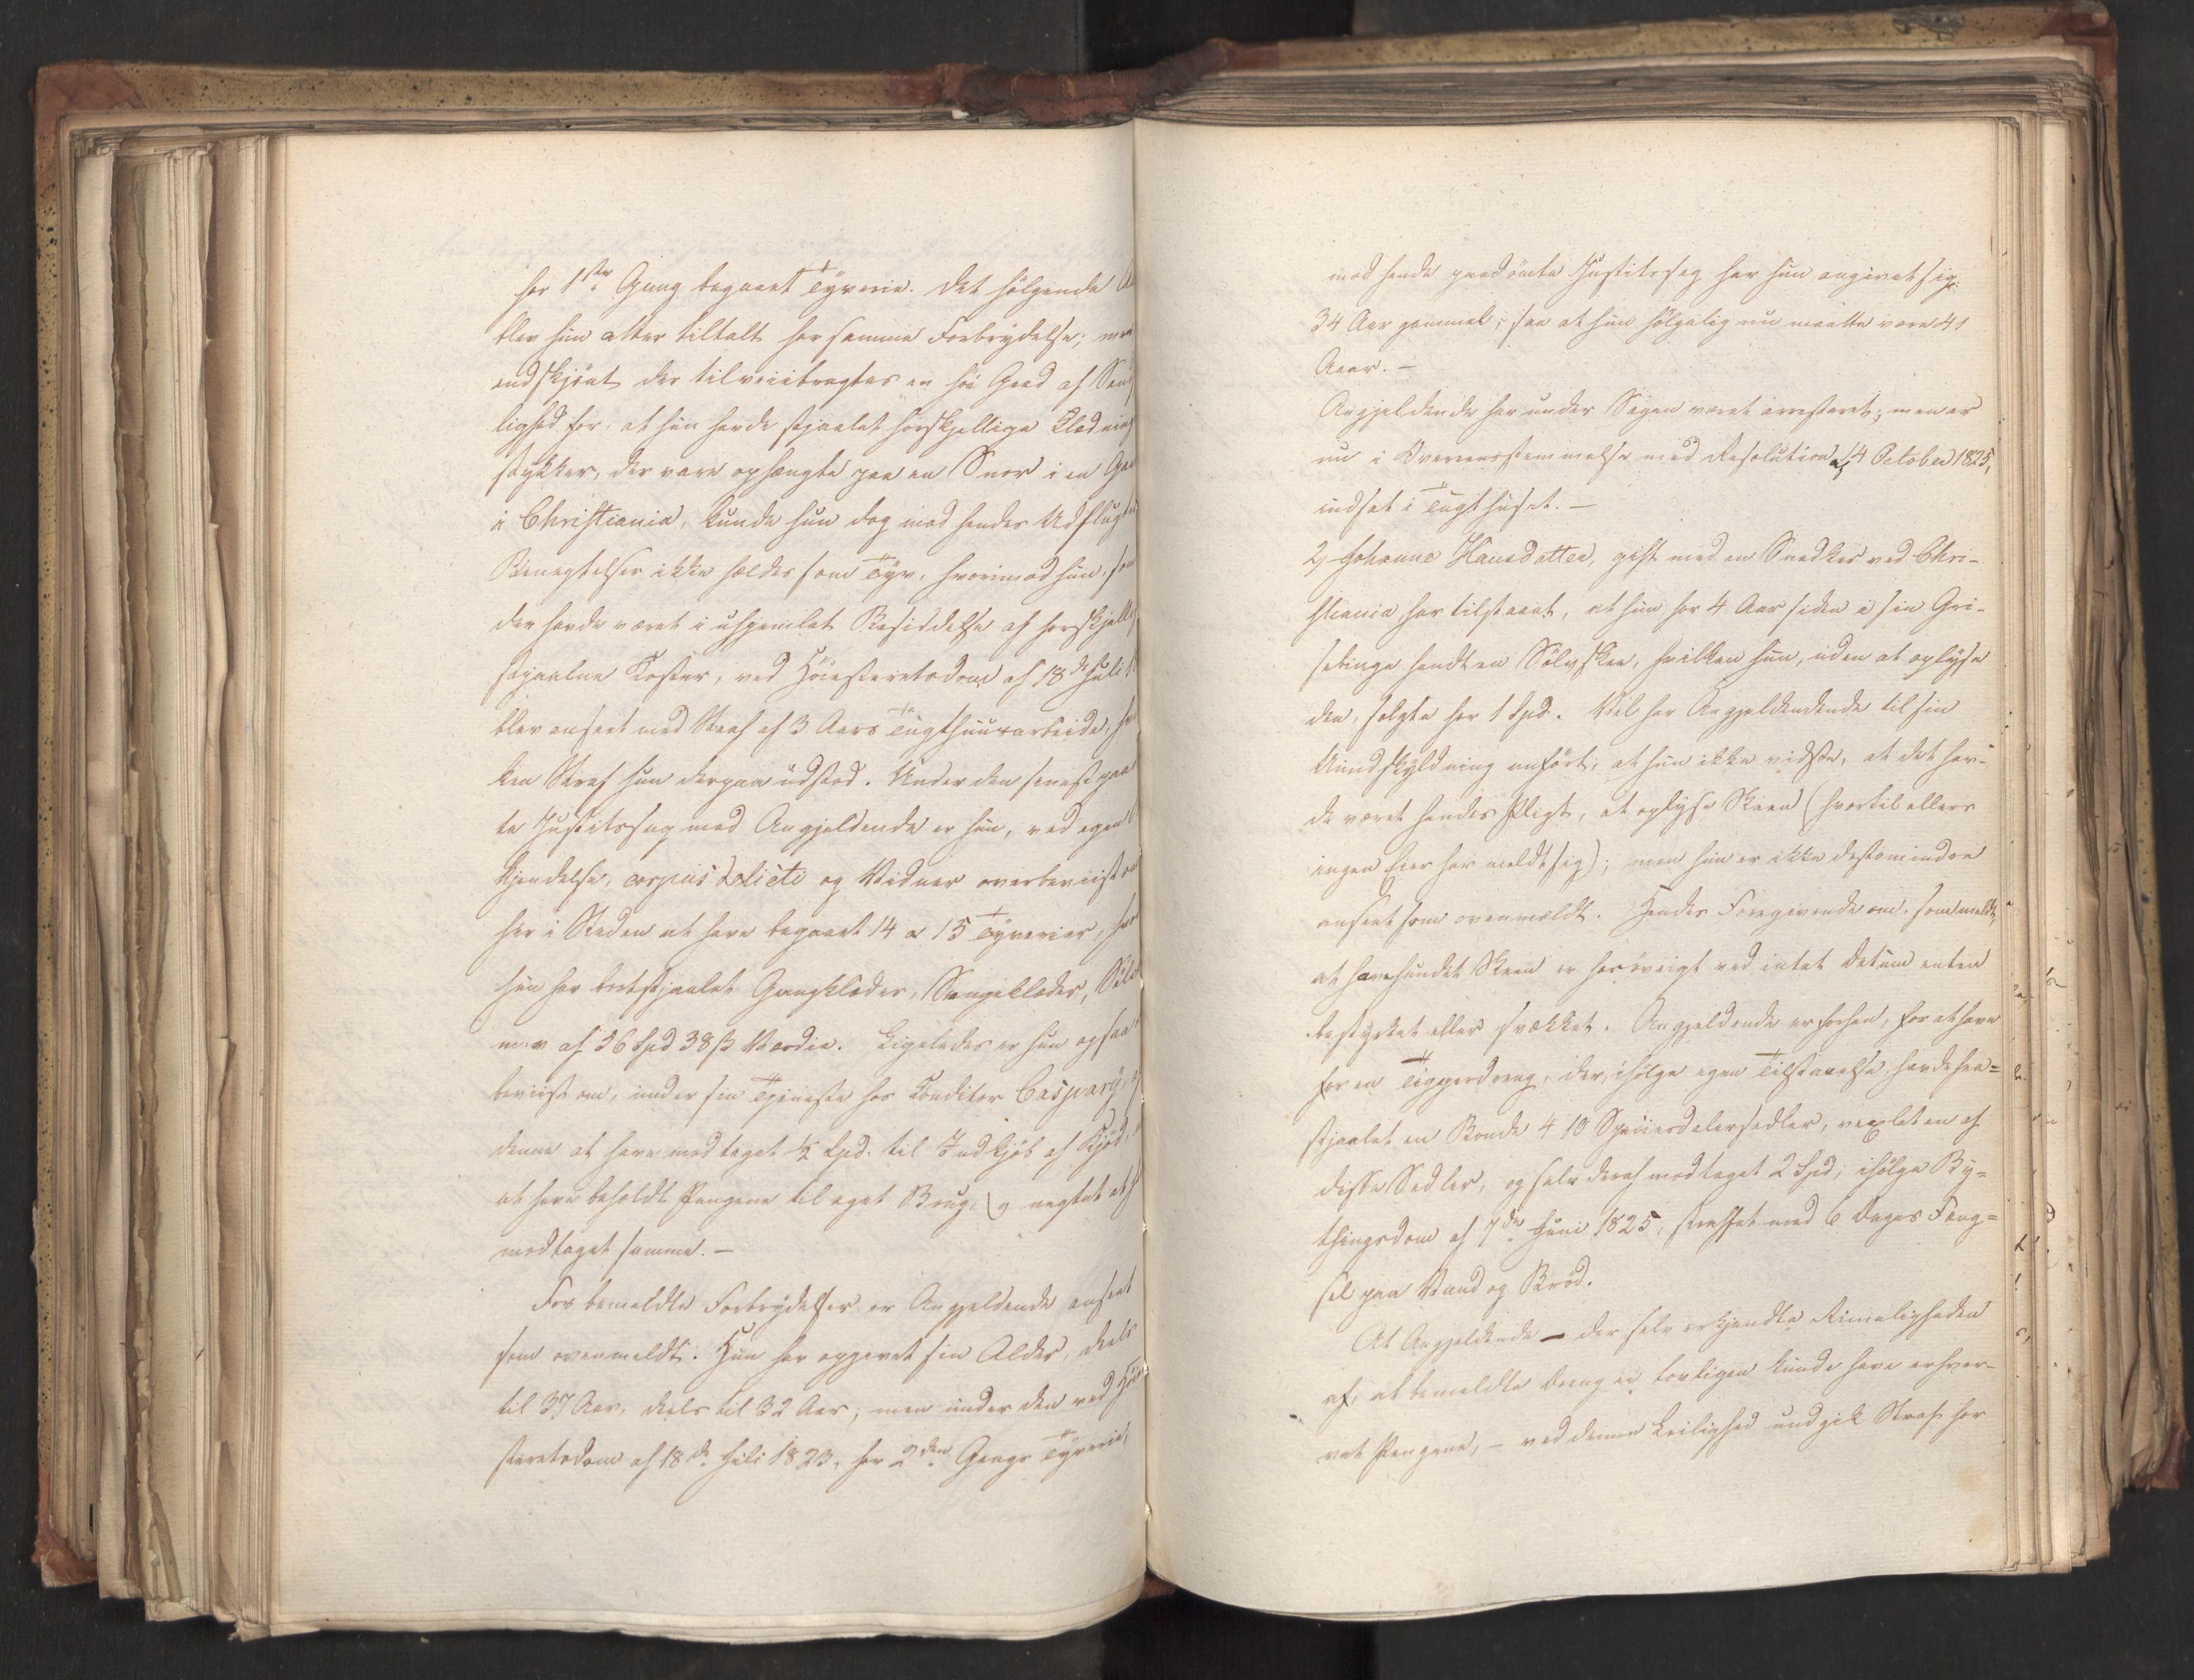 for 1ste Gang begaaet Tyverie. Det følgende
blev hun atter tiltalt for samme Forbrydelse; men
endskjønt der tilveiebragtes en høi Grad af Sand
lighed for, at hun havde stjaalet forskjellige Klædnings
stykker, der vare ophængte paa en Snor i en Ga
i Christiania, kunde hun dog mod hendes Udflugter
Benegtelser ikke fældes som Tyv, hvorimod hun, som
der havde været i uhjemlet Besiddelse af forskjellige
stjaalne Koster, ved Høiesteretsdom af 18de Juli
blev anseet med Straf af 3 Aars Tugthuusarbeide, hvil
ken Straf hun derpaa udstod. Under den senest paa
te Justitssag mod Angjeldende er hun, ved egen
kjendelse, corpus delicti og Vidner overbeviist om
her i Staden at have begaaet 14 a 15 Tyverier, hvor
hun har bortstjaalet Gangklæder, Sengeklæder, Sølv
m: v af 56 Spd 38 ß Værdie. Ligeledes er hun ogsaa
beviist om, under sin Tjeneste hos Conditor Caspary, af
denne at have modtaget ½ Spd. til Indkjøb af Kjød,
at have beholdt Pengene til eget Brug, og negtet at h
modtaget samme. –
For bemeldte Forbrydelser er Angjeldende anseet
som ovenmeldt. Hun har opgivet sin Alder, deels
til 37 Aar, deels til 32 Aar; men under den ved Høie
steretsdom af 18de Juli 1823, for 2den Gangs Tyverie,
mod hende paadømte Justitssag har hun angivet sig
34 Aar gammel, saa at hun følgelig nu maatte være 41
Aaar. –
Angjeldende har under Sagen været arresteret; men er
nu i Overeensstemmelse med Resolution af 14 October 1825,
indsat i Tugthuset. –
2, Johanne Hansdatter, gift med en Snedker ved Chri-
stiania, har tilstaaet, at hun for 4 Aar siden i sin Gri-
sebinge fandt en Sølvskee, hvilken hun, uden at oplyse
den, solgte for 1 Spd. Vel har Angjeldendende til sin
Undskyldning anført, at hun ikke vidste, at det hav-
de været hendes Pligt, at oplyse Skeen (hvortil ellers
ingen Eier har meldt sig); men hun er ikke destomindre
anseet som ovenmeldt. Hendes Foregivende om, som meldt,
at have fundet Skeen er forøvrigt ved intet datum enten
bestyrket eller svækket. Angjeldende er forhen, for at have
for en Tiggerdreng, der, ifølge egen Tilstaaelse, havde fra=
stjaalet en Bonde 4 10 Speciesdalersedler, vexlet en af
disse Sedler, og selv deraf modtaget 2 Spd, ifølge By=
thingsdom af 7de Juni 1825, straffet med 6 Dages Fæng=
sel paa Vand og Brød.
At Angjeldende – der selv erkjendte Rimeligheden
af, at bemeldte Dreng ei lovligen kunde have erhver-
vet Pengene, – ved denne Leilighed undgik Straf for